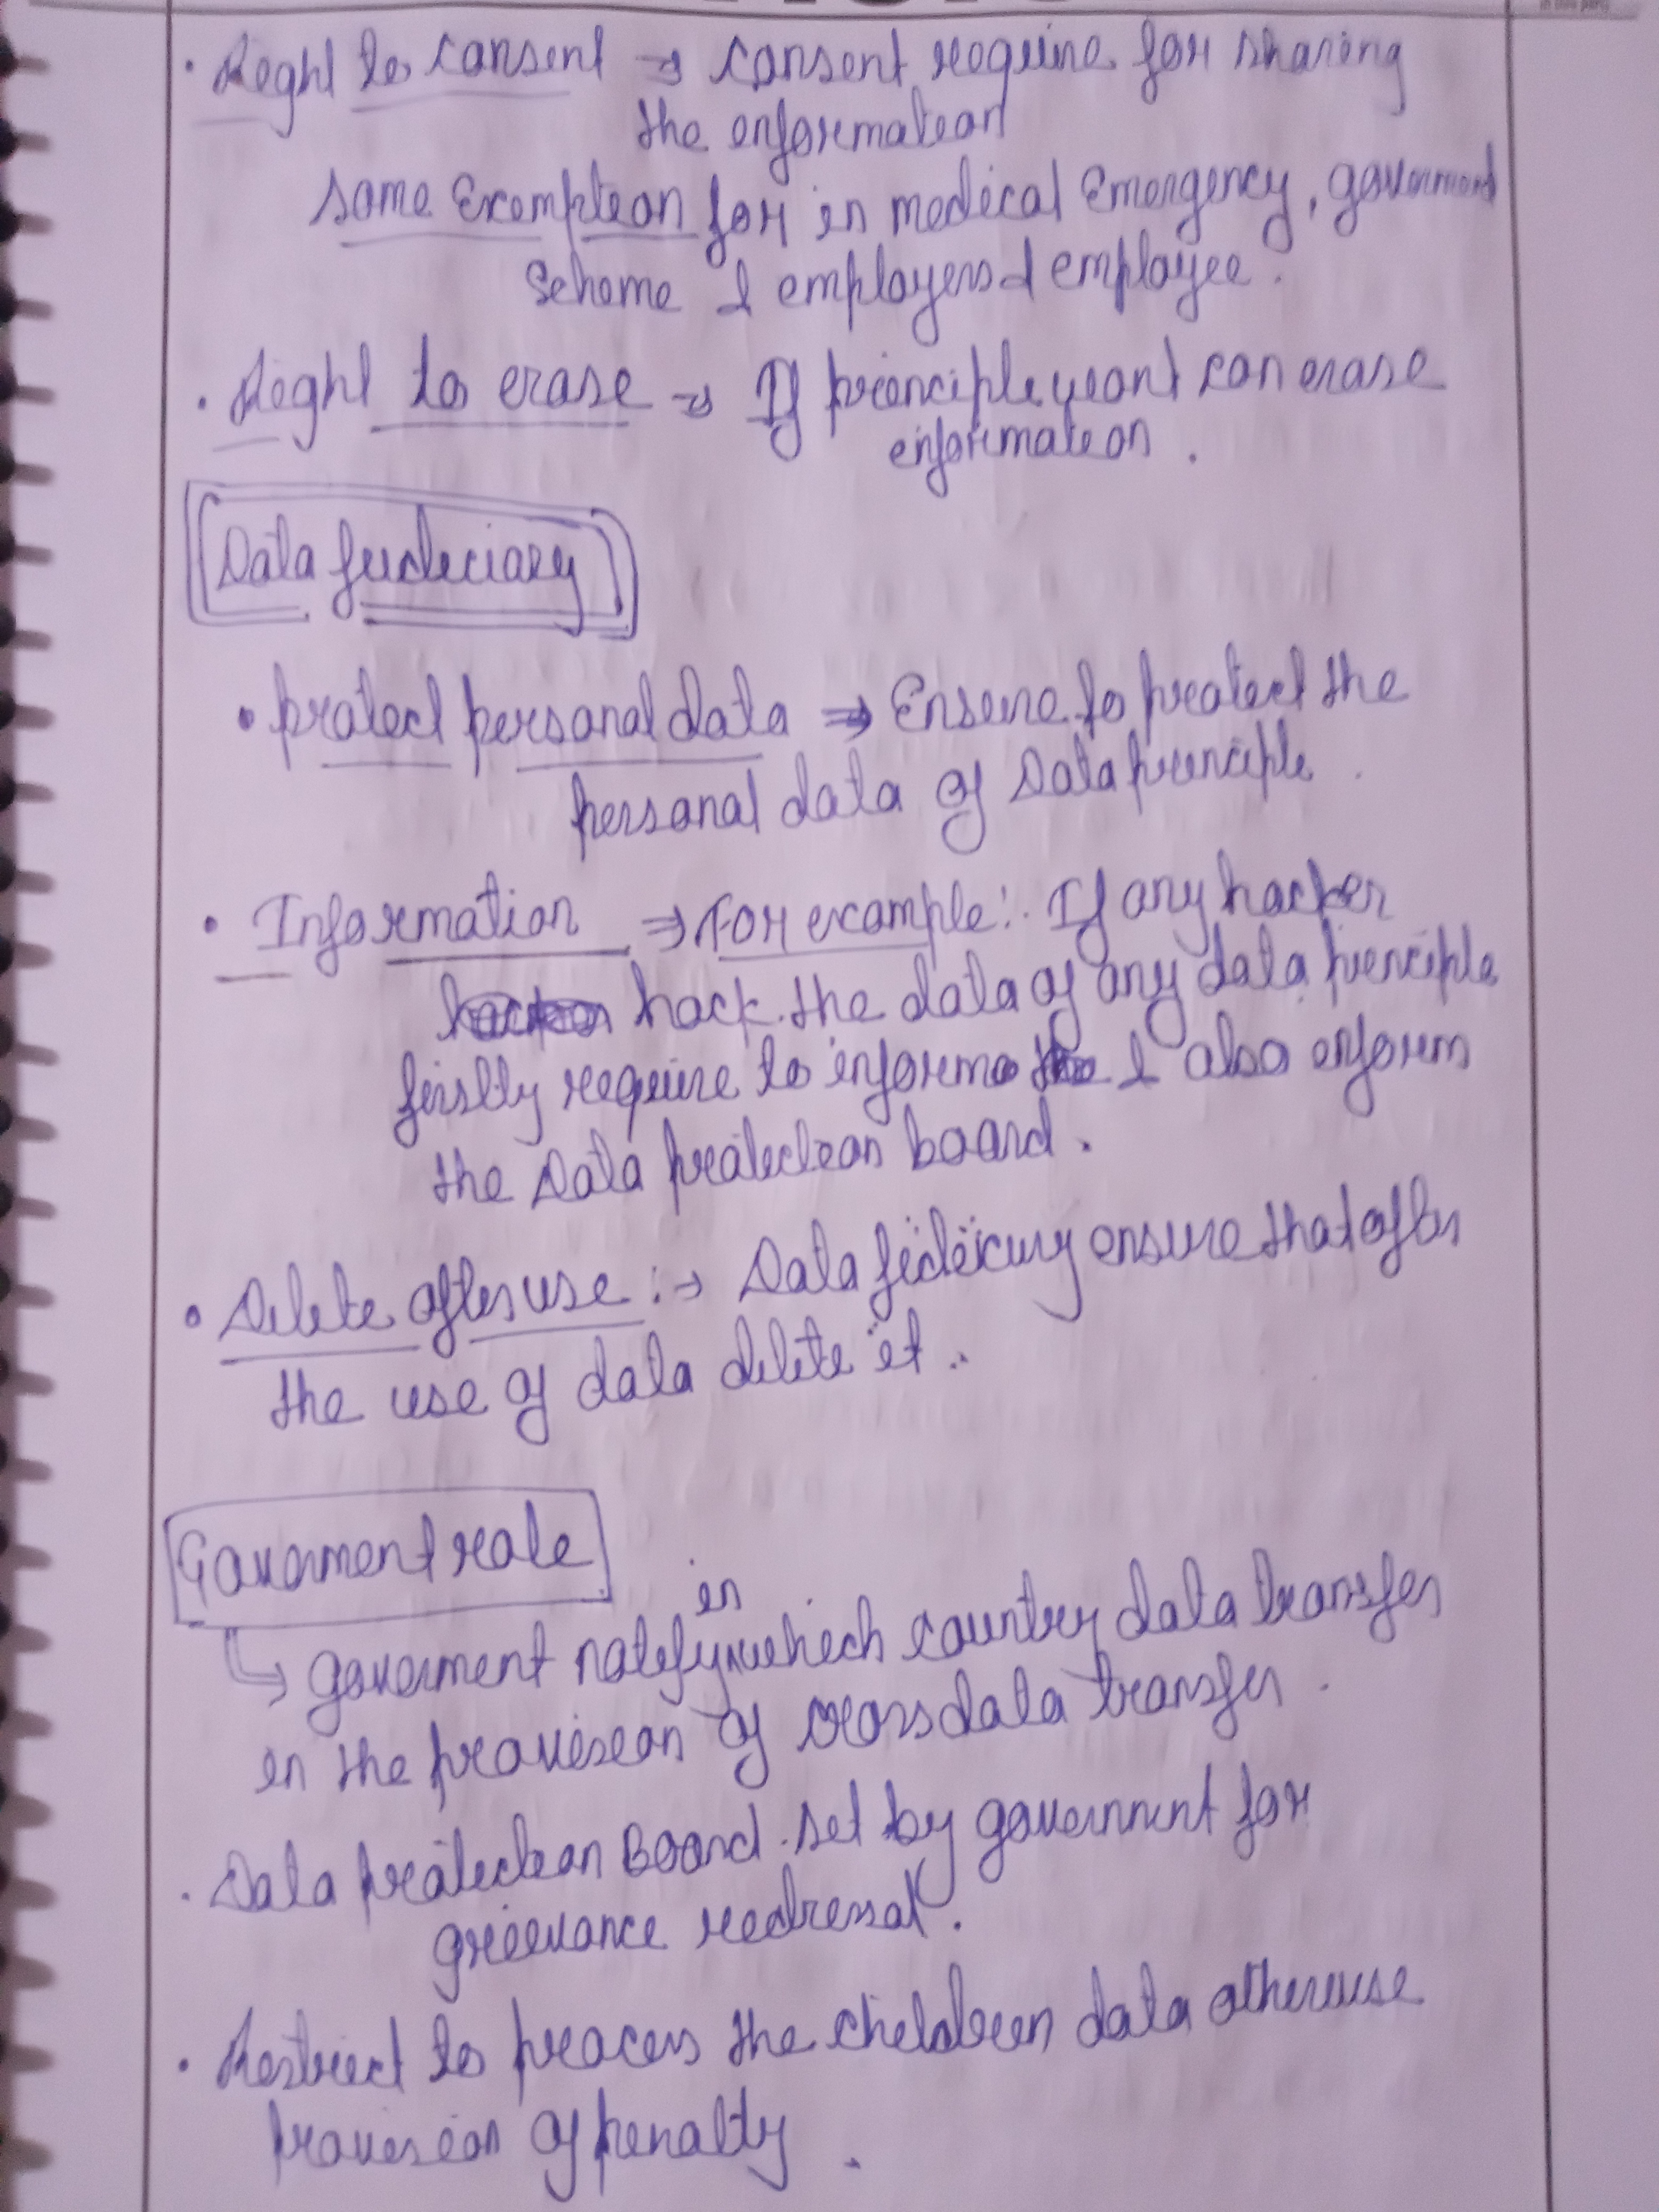 • Right to consent ⇒ consent require for sharing
the information
some Exemption for in medical Emergency, goverment
scheme & employers & employee.
• Right to erase ⇒ If principle want can erase
information.
Data fiudeciary
• protect personal data ⇒ Ensure to protect the
personal data of Data principle.
• Information ⇒ For example:- If any hacker
hack the data of any data principle
firstly require to informe & also inform
the Data protection board.
• Delete after use :→ Data fidicury ensure that after
the use of data delete it.
Goverment role
↳ goverment notify in which country data transfer
in the provision of cross data transfer.
• Data protection Board set by government for
grievance redressal.
• Restrict to process the children data otherwise
provision of penalty.